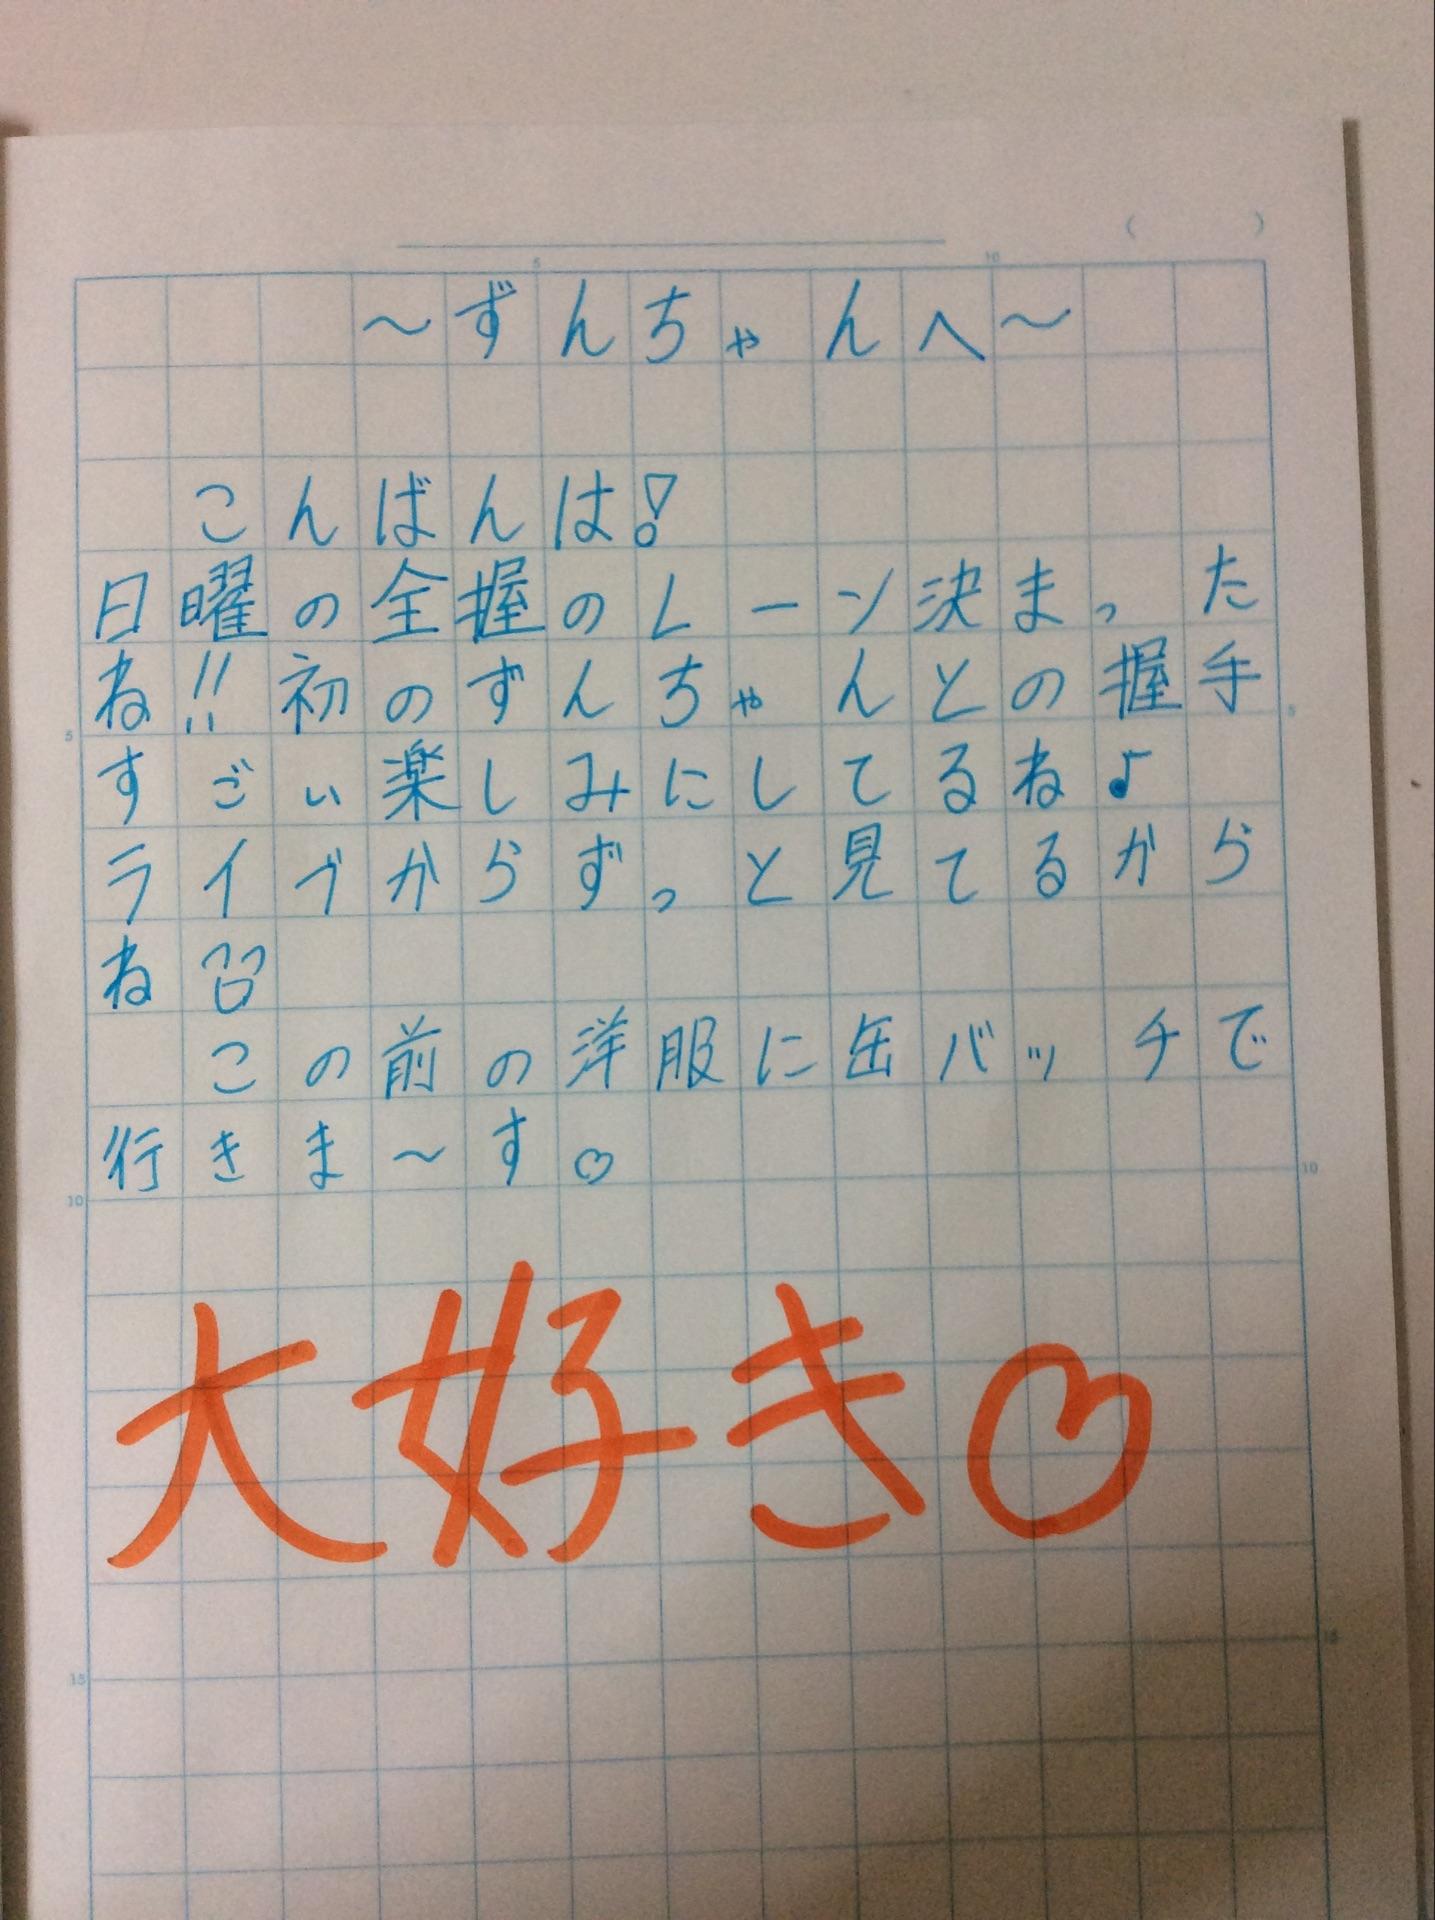 ～ずんちゃんへ～
こんばんは!
日曜の全握のレーン決まった
ね!!初のずんちゃんとの握手
すごい楽しみにしてるね♪
ライブからずっと見てるから
ね
この前の洋服に缶バッチで
行きま～す♡
大好き♡
5
10
5
5
10
10
15
15